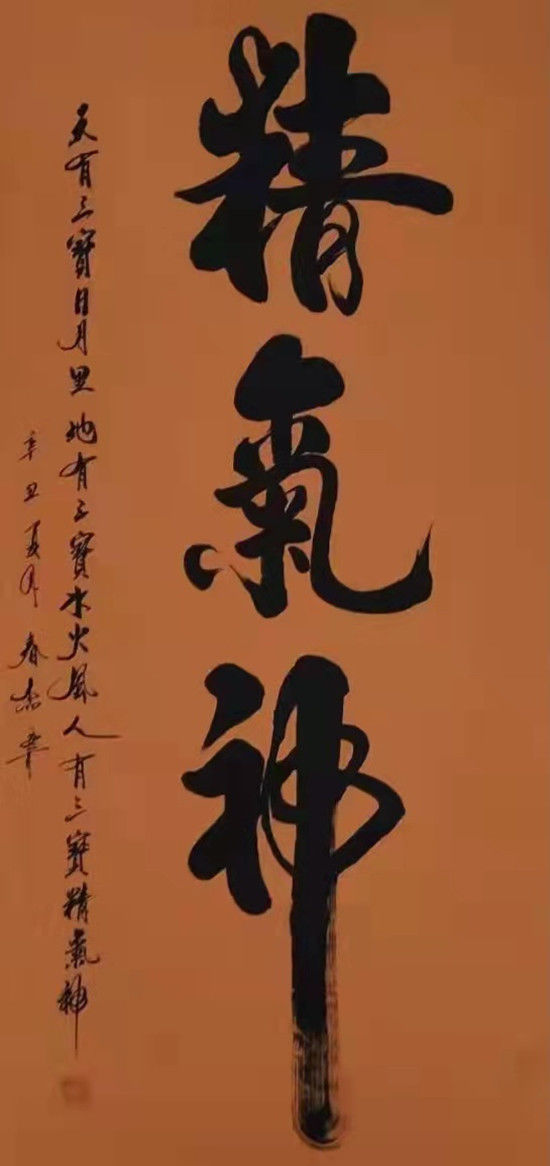 精氣神
天有三寶日月星地有三寶水火風人有三寶精氣神
辛丑夏月春杰